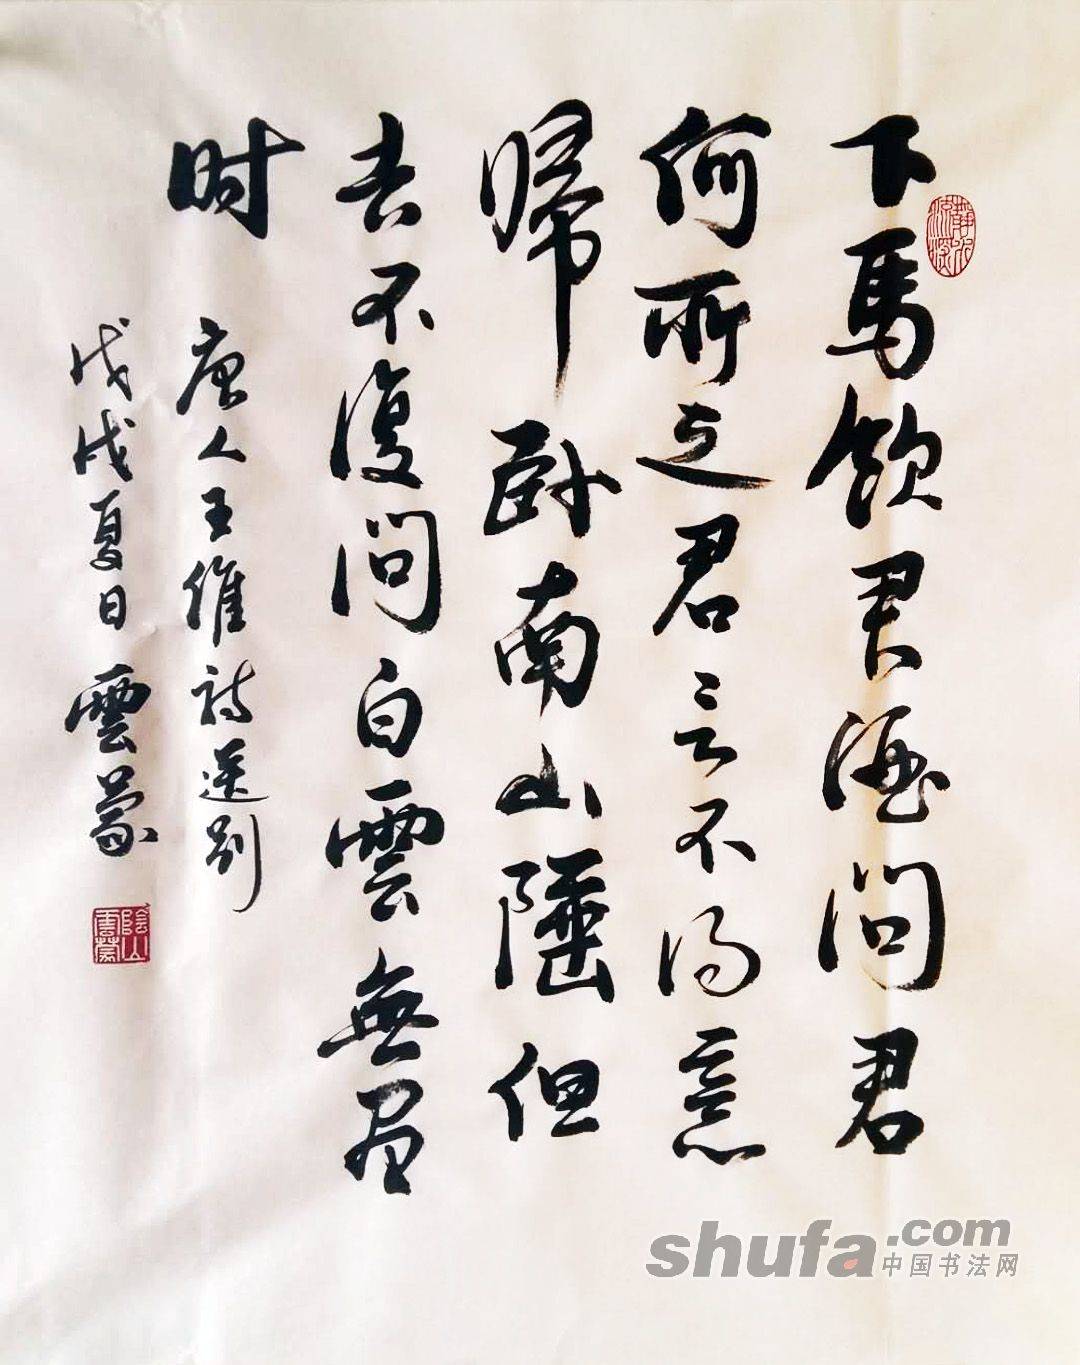 下馬飲君酒問君
何所之君言不得意
歸卧南山陲但
去不復問白雲無盡
时 唐人王維詩送别
戊戌夏日雲蒙
陰山雲蒙
shufa.com
中国书法网